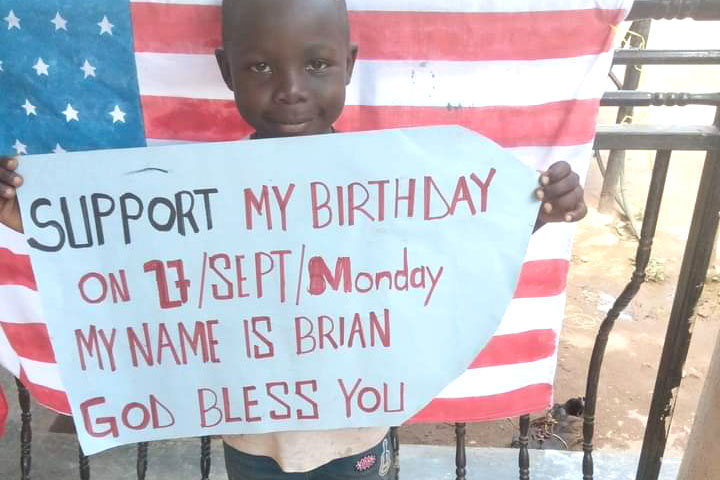 SUPPORT MY BIRTHDAY
ON 27/SEPT/Monday
MY NAME IS BRIAN
GOD BLESS YOU